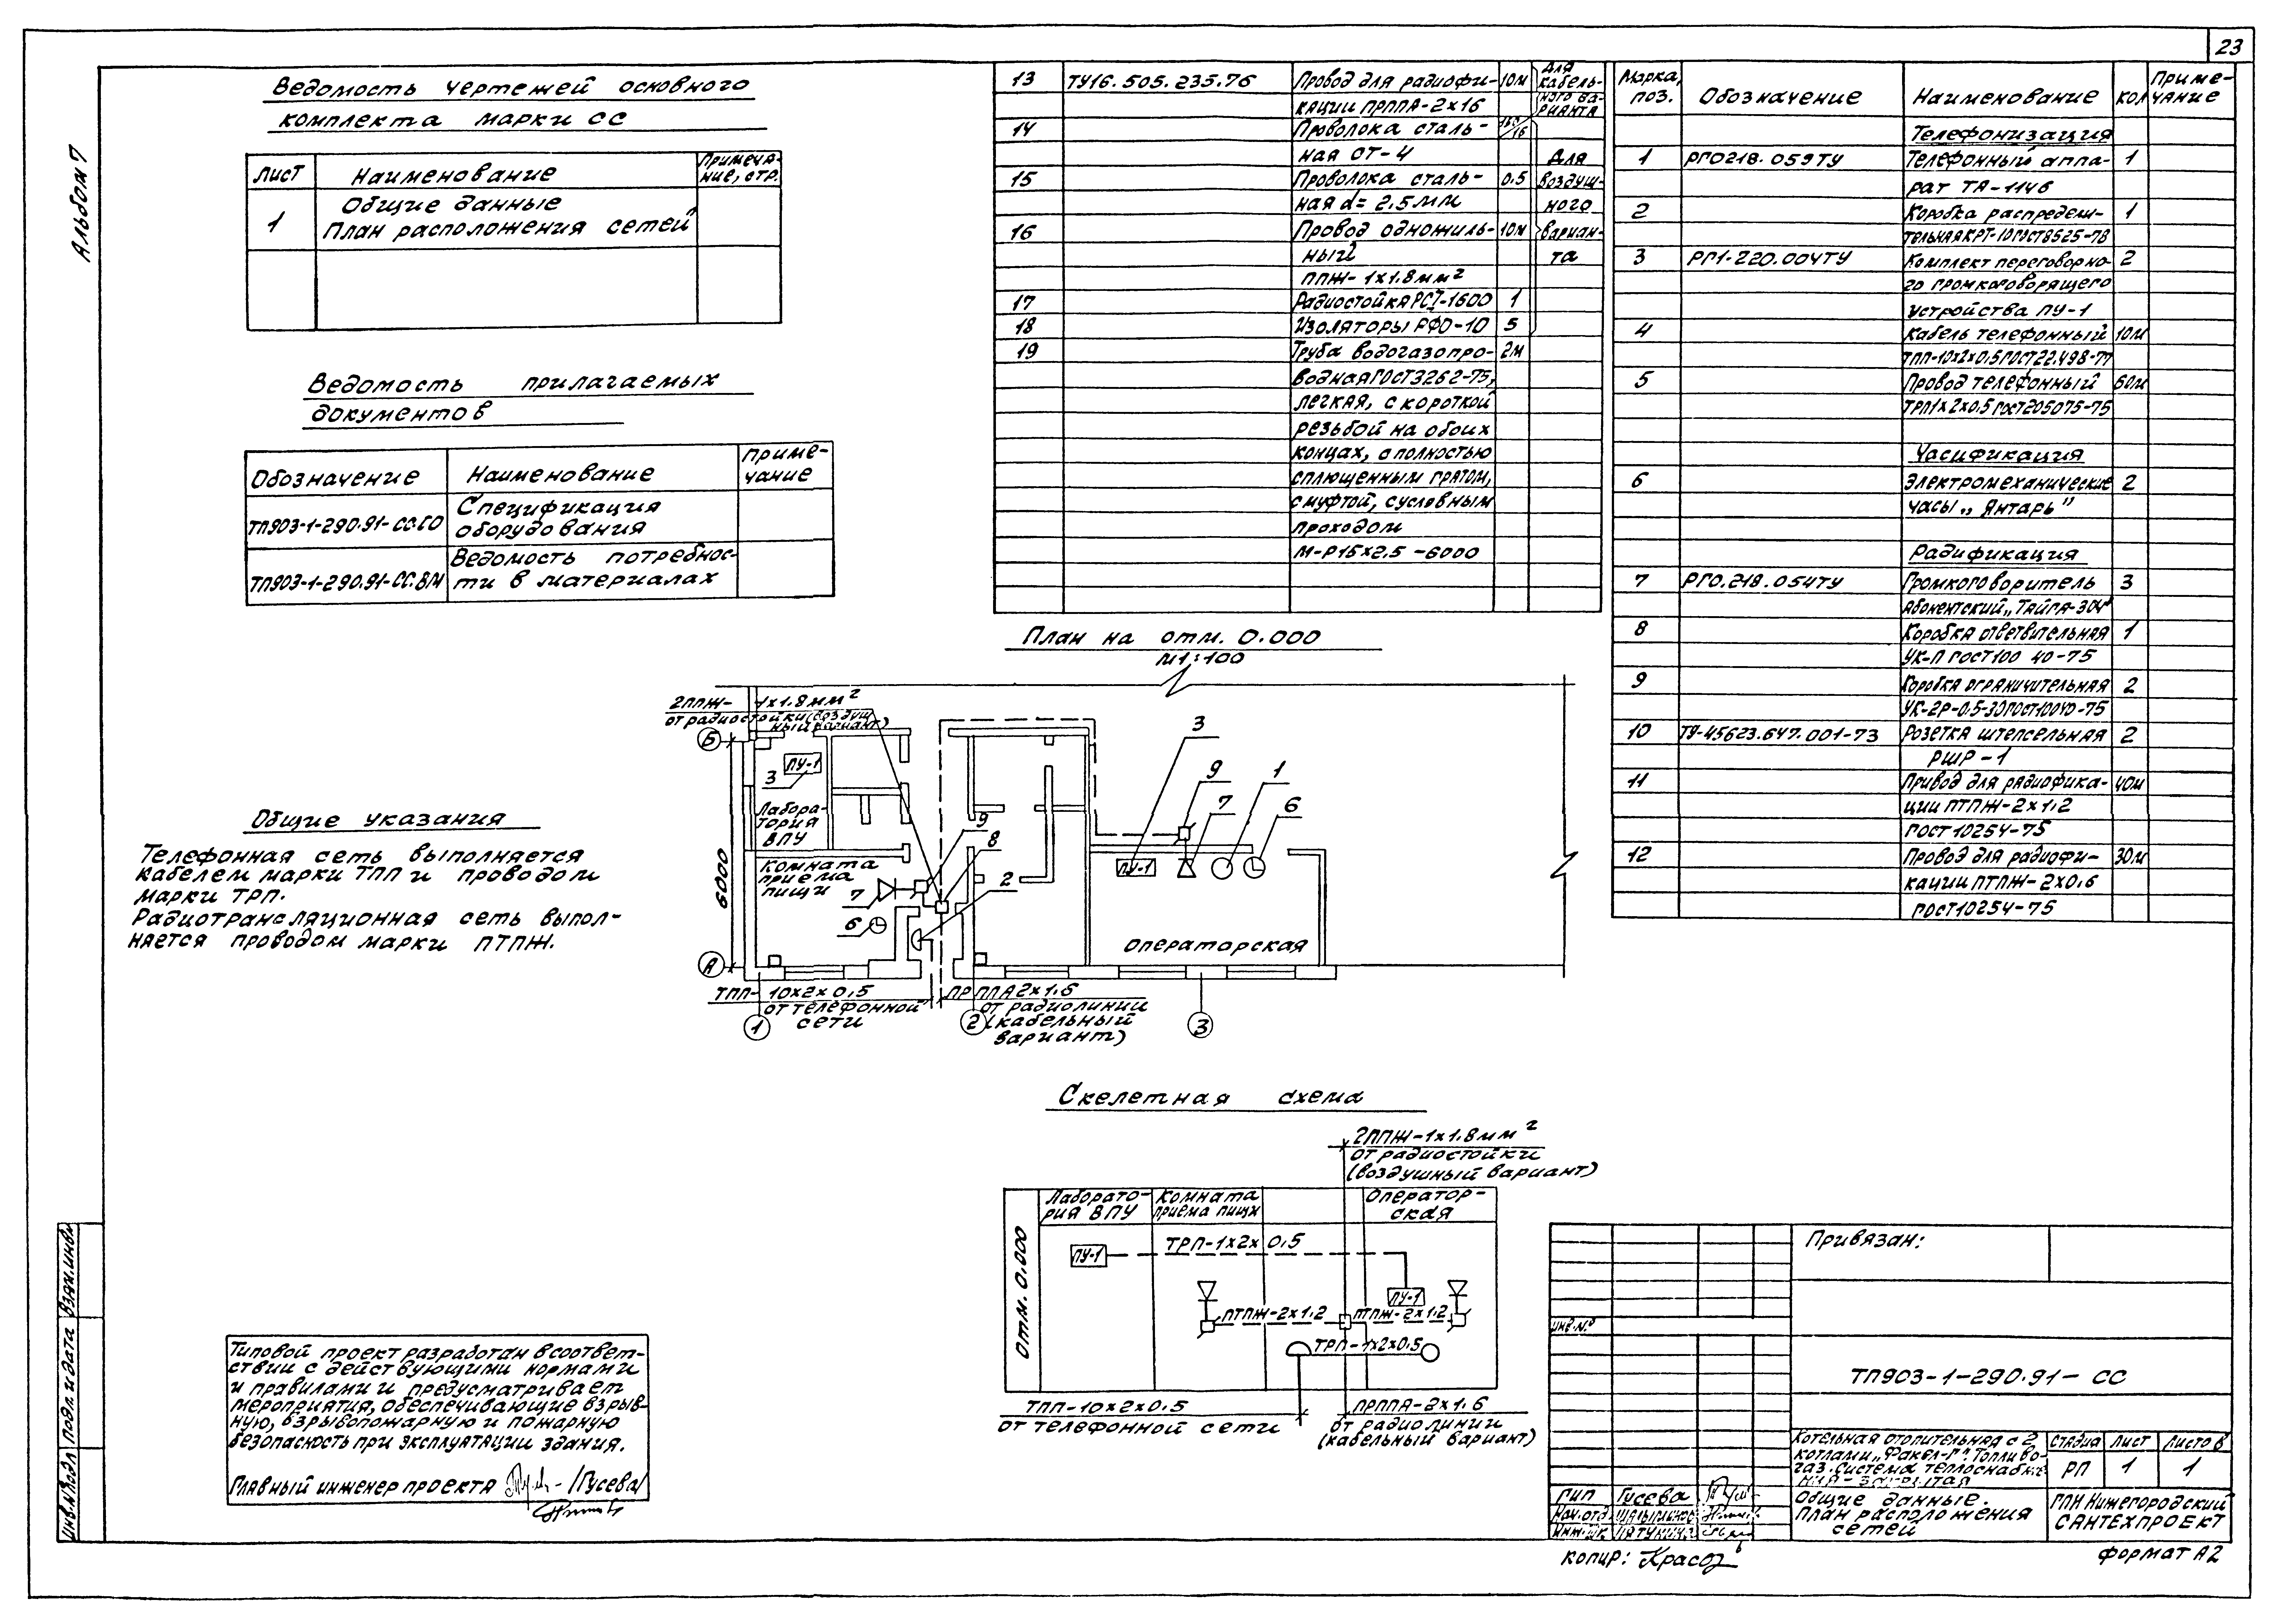 23
Альбом 7
Ведомость чертежей основного
комплекта марки СС
Лист Наименование Примеча-
ние, стр.
1 Общие данные
План расположения сетей
Ведомость прилагаемых
документов
Обозначение Наименование Приме-
чание
ТП903-1-290.91-СС.СО Спецификация
оборудования
ТП903-1-290.91-СС.ВМ Ведомость потребнос-
ти в материалах
Общие указания
Телефонная сеть выполняется
кабелем марки ТПП и проводом
марки ТРП.
Радиотрансляционная сеть выпол-
няется проводом марки ПТПЖ.
13 ТУ16.505.235.76 Провод для радиофи- 10м для
кабель-
кации ПРППА-2х16 ного ва-
рианта
14 Проволока сталь-
ная ОТ-4 для
15 Проволока сталь- 0.5 воздуш-
ная d=2.5мм ного
16 Провод одножиль- 10м вариан-
ный та
ППЖ-1х1.8мм²
17 Радиостойка РСI-1600 1
18 Изоляторы РФО-10 5
19 Труба водогазопро- 2м
водная ГОСТ3262-75,
легкая, с короткой
резьбой на обоих
концах, с полностью
сплющенным гратом,
с муфтой, с условным
проходом
М-Р15х2.5-6000
Марка, поз. Обозначение Наименование Кол Приме-
чание
Телефонизация
1 РГ0218.059ТУ Телефонный аппа- 1
рат ТА-1146
2 Коробка распредели- 1
тельная КРТ-10 ГОСТ8525-78
3 РГ1-220.004ТУ Комплект переговорно- 2
го громкоговорящего
устройства ПУ-1
4 Кабель телефонный 10м
ТПП-10х2х0.5 ГОСТ22.498-77
5 Провод телефонный 60м
ТРП1х2х0.5 ГОСТ205075-75
Часификация
6 Электромеханические 2
часы „Янтарь"
Радификация
7 РГ0.218.054ТУ Громкоговоритель 3
абонентский „Тайга-304"
8 Коробка ответвительная 1
УК-П ГОСТ100 40-75
9 Коробка ограничительная 2
УК-2Р-0.5-30 ГОСТ10040-75
10 ТУ-45623.647.001-73 Розетка штепсельная 2
РШР-1
11 Привод для радиофика- 40м
ции ПТПЖ-2х1.2
ГОСТ10254-75
12 Провод для радиофи- 30м
кации ПТПЖ-2х0.6
ГОСТ10254-75
План на отм. 0.000
М1:100
2ППЖ-1х1.8мм²
от радиостойки (воздуш
ный вариант)
Б
ПУ-1
3
Лабора-
тория
ВПУ
Комната
приема
пищи
9
8
2
7
6
6000
А
3
9
1
7
6
ПУ-1
Операторская
ТПП-10х2х0.5
от телефонной
сети
ПРППА2х1.6
от радиолинии
(кабельный
вариант)
1
2
3
Скелетная схема
2ППЖ-1х1.8мм²
от радиостойки
(воздушный вариант)
Лаборато-
рия ВПУ
Комната
приема пищи
Оператор-
ская
отм. 0.000
ПУ-1
ТРП-1х2х0.5
ПУ-1
ПТПЖ-2х1.2
ПТПЖ-2х1.2
ТРП-1х2х0.5
ТПП-10х2х0.5
от телефонной сети
ПРППА-2х1.6
от радиолинии
(кабельный вариант)
Типовой проект разработан в соответ-
ствии с действующими нормами
и правилами и предусматривает
мероприятия, обеспечивающие взрыв-
ную, взрывопожарную и пожарную
безопасность при эксплуатации здания.
Главный инженер проекта /Гусева/
Взам.инв.№
Подп. и дата
Инв.№подл
Привязан:
Инв.№
ТП903-1-290.91-СС
Котельная отопительная с 2
котлами „Факел-Г". Топливо-
газ. Система теплоснабже-
ния-закрытая
Стадия Лист Листов
РП 1 1
Общие данные.
План расположения
сетей
ГПИ Нижегородский
САНТЕХПРОЕКТ
ГИП Гусева
Нач.отд.
копир:
формат А2